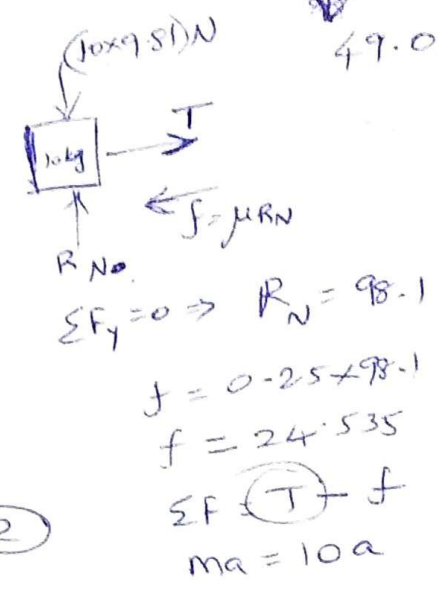 (10x9.81)N
49.0
T
10kg
f = μRN
R No.
ΣFy = 0 => RN = 98.1
f = 0.25x98.1
f = 24.535
ΣF = T - f
2
ma = 10a